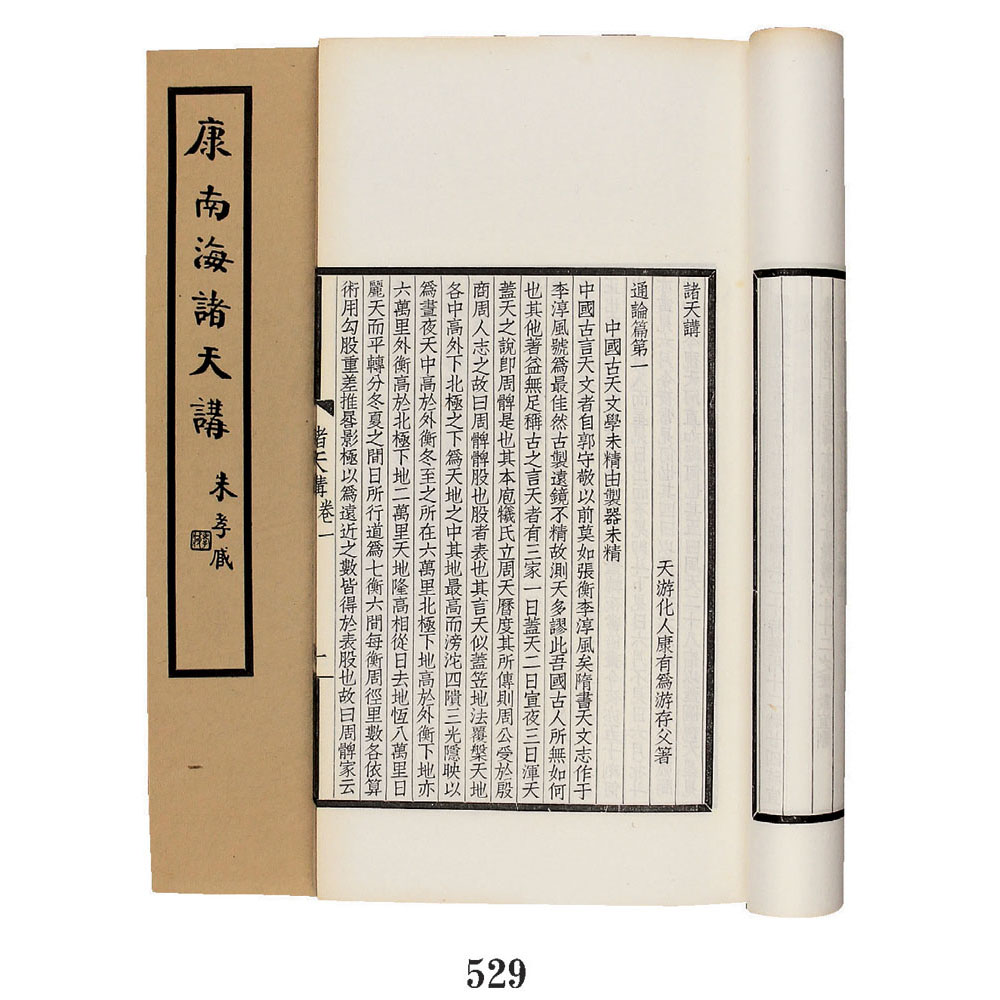 康南海諸天講
朱孝臧
一
諸天講
通論篇第一
天游化人康有爲游存父著
中國古天文學未精由製器未精
中國古言天文者自郭守敬以前莫如張衡李淳風矣隋書天文志作于
李淳風號爲最佳然古製遠鏡不精故測天多謬此吾國古人所無如何
也其他著益無足稱古之言天者有三家一曰蓋天二曰宣夜三曰渾天
蓋天之說卽周髀是也其本庖犧氏立周天曆度其所傳則周公受於殷
商周人志之故曰周髀髀股也股者表也其言天似蓋笠地法覆槃天地
各中高外下北極之下爲天地之中其地最高而滂沱四隤三光隱映以
爲晝夜天中高於外衡冬至之所在六萬里北極下地高於外衡下地亦
六萬里外衡高於北極下地二萬里天地隆高相從日去地恆八萬里日
麗天而平轉分冬夏之間日所行道爲七衡六間每衡周徑里數各依算
術用勾股重差推晷影極以爲遠近之數皆得於表股也故曰周髀家云
諸天講卷一
一
529